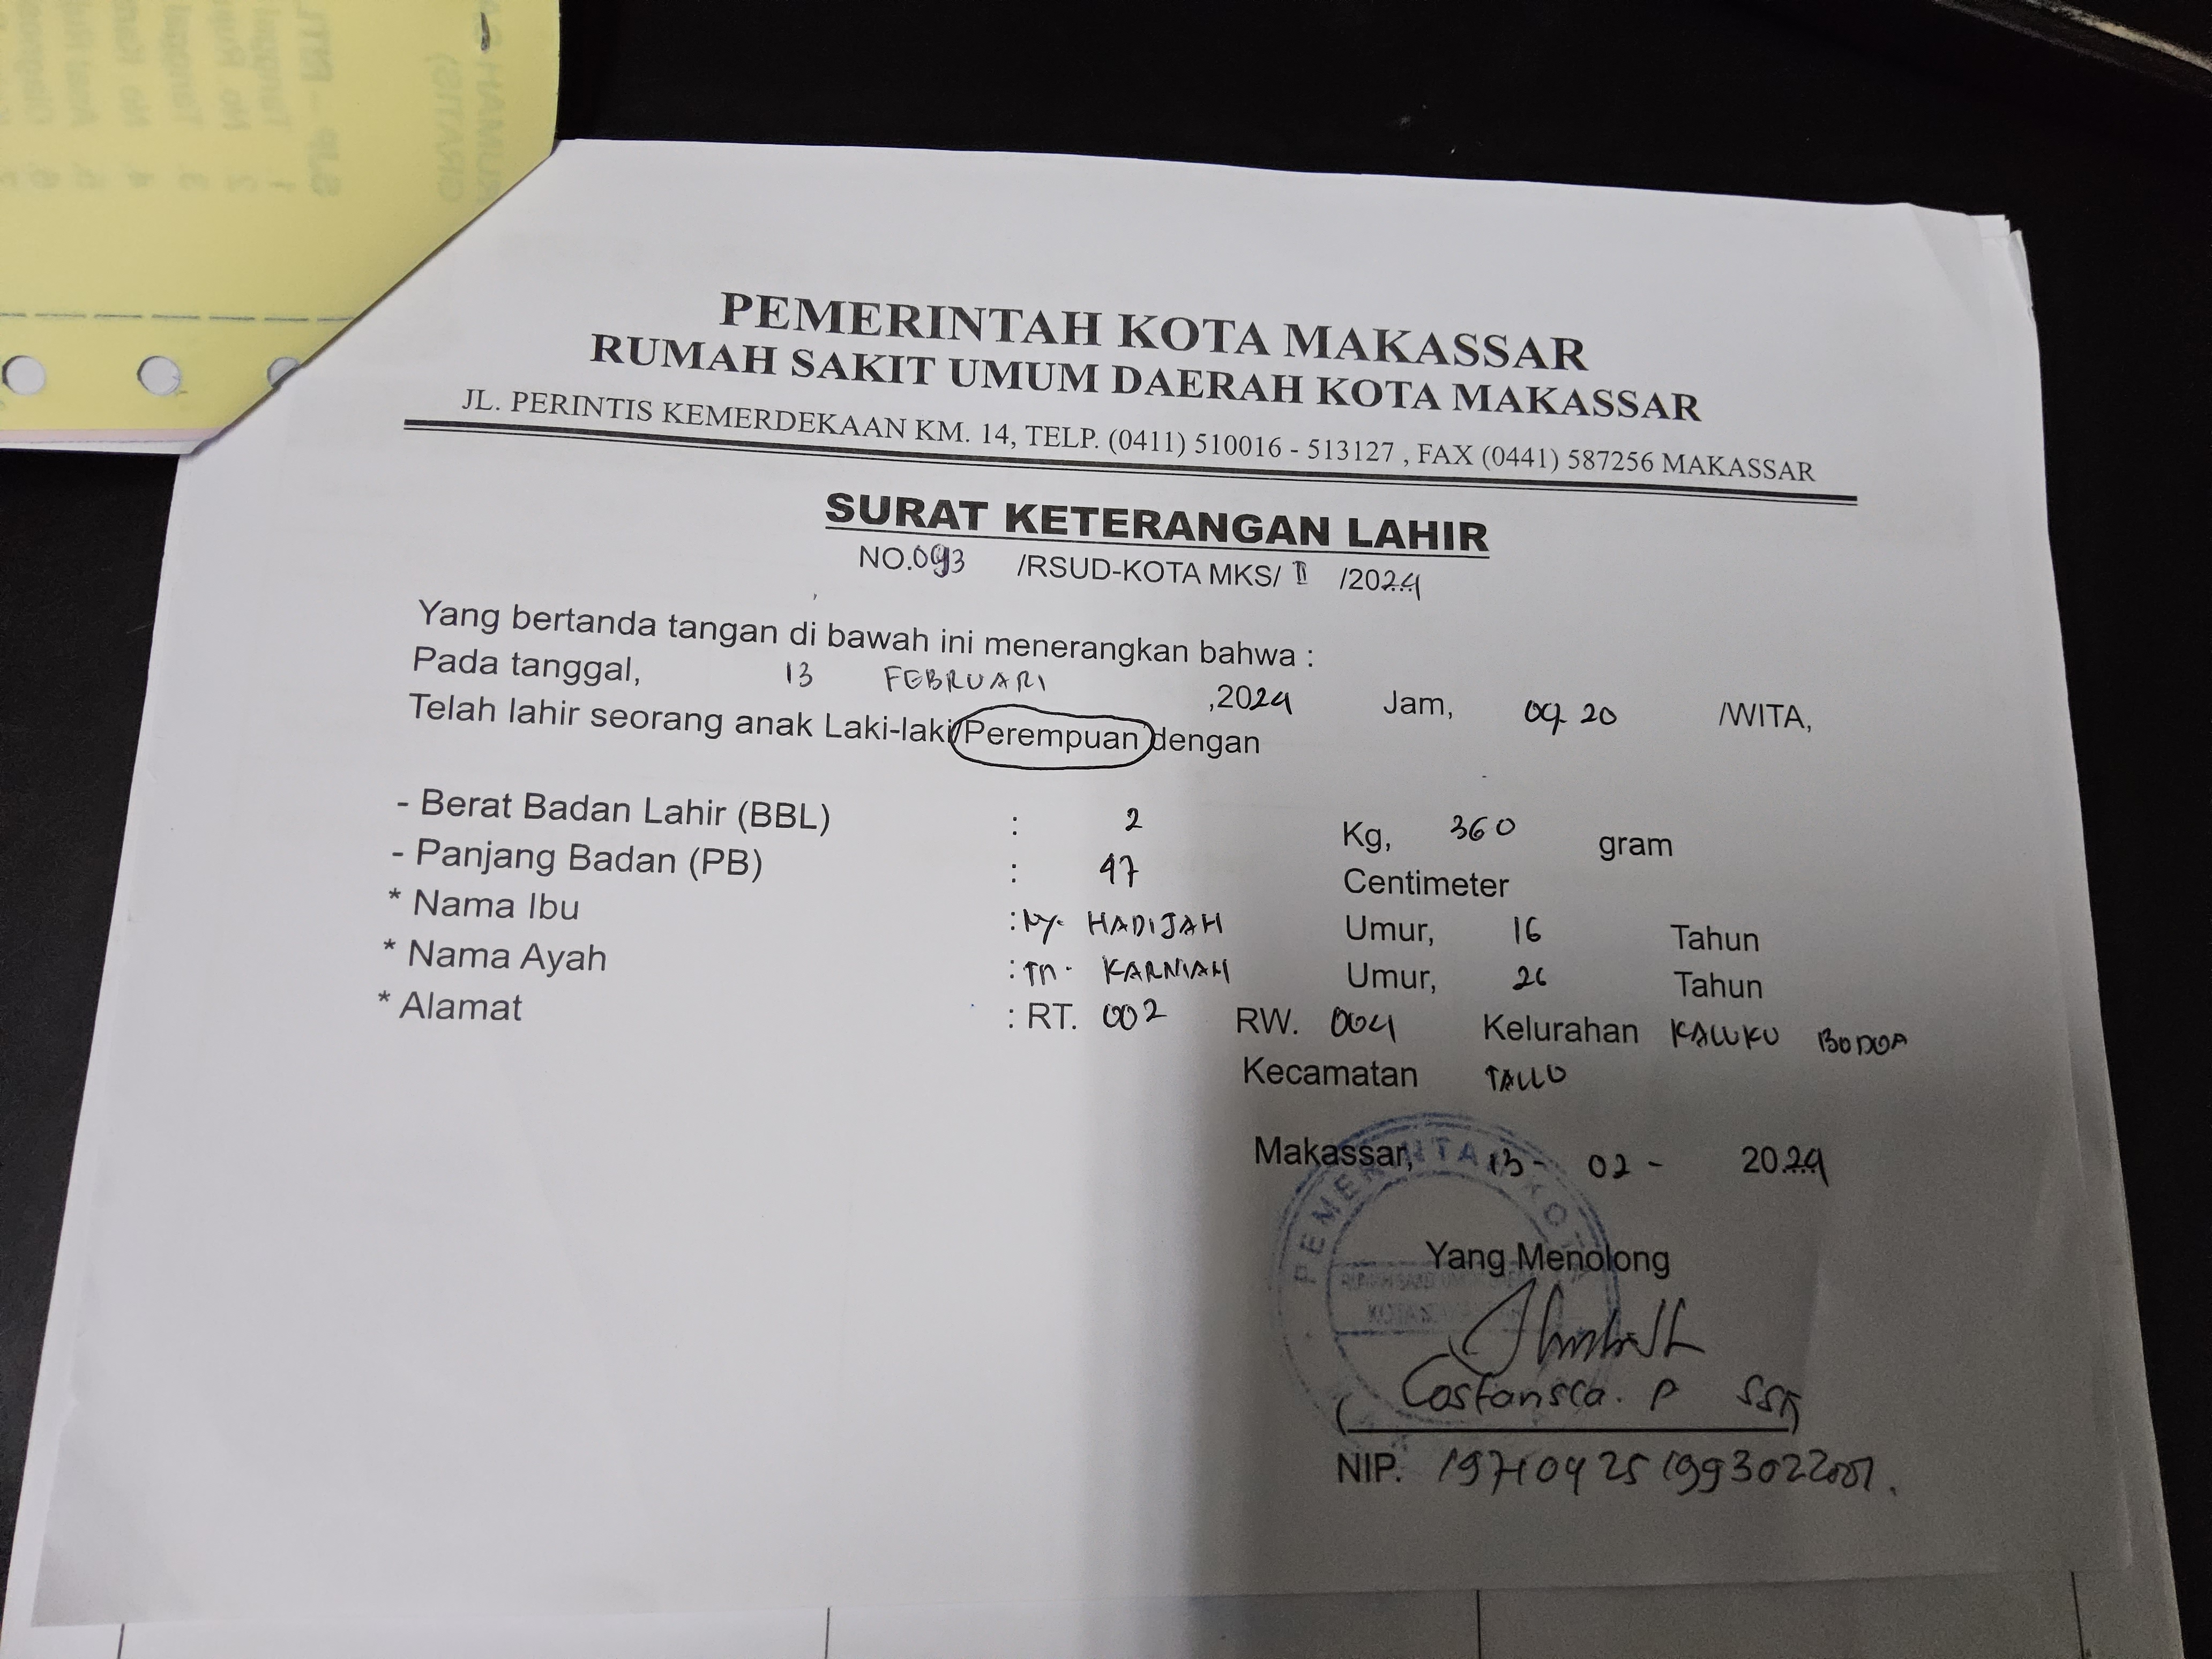 PEMERINTAH KOTA MAKASSAR
RUMAH SAKIT UMUM DAERAH KOTA MAKASSAR
JL. PERINTIS KEMERDEKAAN KM. 14, TELP. (0411) 510016 - 513127 , FAX (0441) 587256 MAKASSAR
SURAT KETERANGAN LAHIR
NO.093 /RSUD-KOTA MKS/ II /2024
Yang bertanda tangan di bawah ini menerangkan bahwa :
Pada tanggal, 13 FEBRUARI ,2024 Jam, 09.20 /WITA,
Telah lahir seorang anak Laki-laki/Perempuan dengan
- Berat Badan Lahir (BBL) : 2 Kg, 360 gram
- Panjang Badan (PB) : 47 Centimeter
* Nama Ibu : Ny. HADIJAH Umur, 16 Tahun
* Nama Ayah : Tn. KARNIAH Umur, 26 Tahun
* Alamat : RT. 002 RW. 004 Kelurahan KALUKU BODOA
Kecamatan TALLO
Makassar, 13- 02 - 2024
PEMERINTA KOTA
Yang Menolong
Costansca. P
NIP. 197104251993022001.